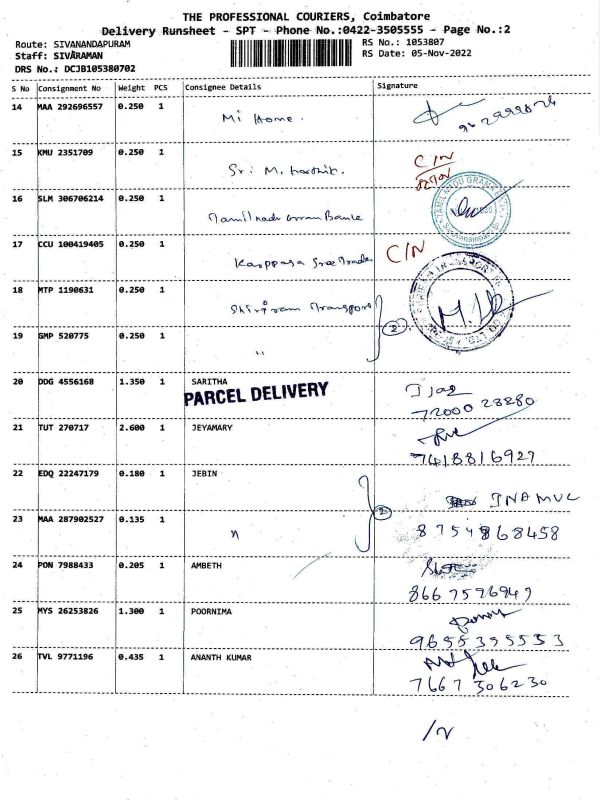 THE PROFESSIONAL COURIERS, Coimbatore
Delivery Runsheet - SPT - Phone No.:0422-3505555 - Page No.:2
Route: SIVANANDAPURAM
RS No.: 1053807
Staff: SIVARAMAN
RS Date: 05-Nov-2022
DRS No.: DCJB105380702
S No Consignment No Weight PCS Consignee Details Signature
14 MAA 292696557 0.250 1 Mi Home.
15 KMU 2351709 0.250 1 Sri M. karthik. C/N
16 SLM 306706214 0.250 1 Tamil nadu Gram Bank
TAMIL NADU GRAMA
17 CCU 100419405 0.250 1 Karppaga Sree Trade C/N
18 MTP 1190631 0.250 1 Shriram Transport
2
19 GMP 520775 0.250 1 "
20 DDG 4556168 1.350 1 SARITHA
PARCEL DELIVERY
72000 23280
21 TUT 270717 2.600 1 JEYAMARY
7418816927
22 EDQ 22247179 0.180 1 JEBIN
2 INAMUL
23 MAA 287902527 0.135 1 "
8754868458
24 PON 7988433 0.205 1 AMBETH
8667596947
25 MYS 26253826 1.300 1 POORNIMA
9655395553
26 TVL 9771196 0.435 1 ANANTH KUMAR
7667306230